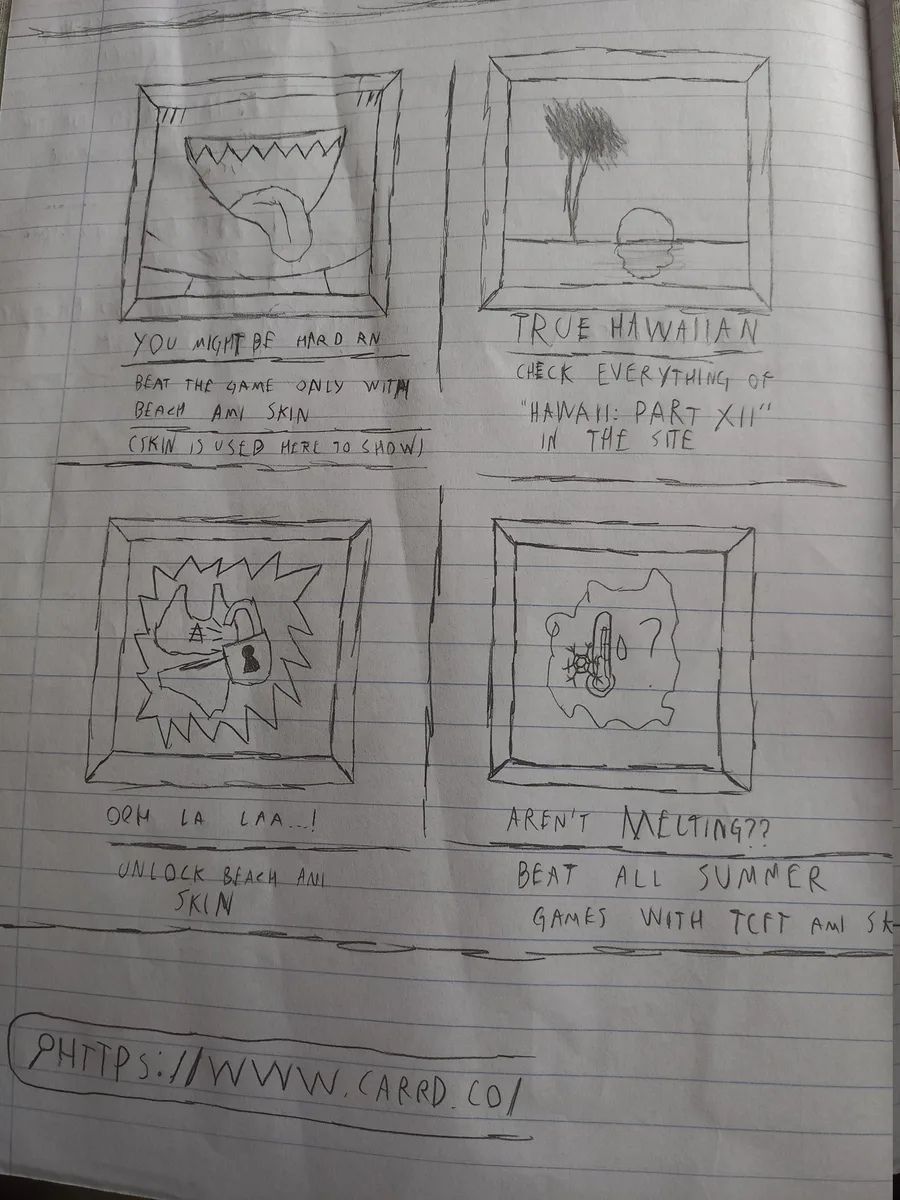 YOU MIGHT BE HARD AN
BEAT THE GAME ONLY WITH
BEACH AMI SKIN
(SKIN IS USED HERE TO SHOW)
TRUE HAWAIIAN
CHECK EVERYTHING OF
"HAWAII: PART XII"
IN THE SITE
A
OOH LA LAA...!
UNLOCK BEACH AMI
SKIN
?
AREN'T MELTING??
BEAT ALL SUMMER
GAMES WITH TCFT AMI SK
HTTPS://WWW.CARRD.CO/